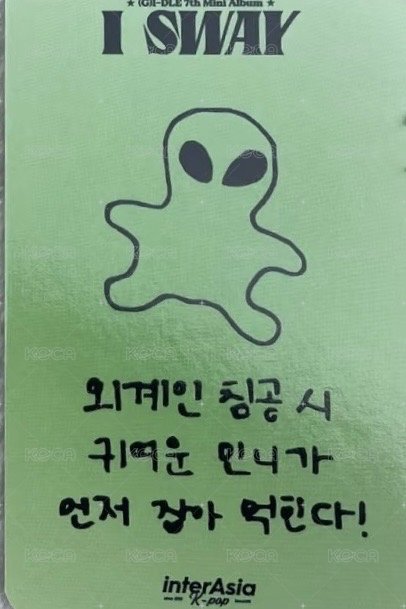 ★ (G)I-DLE 7th Mini Album ★
I SWAY
외계인 침공 시
귀여운 민니가
먼저 잡아 먹힌다!
interAsia
K-pop